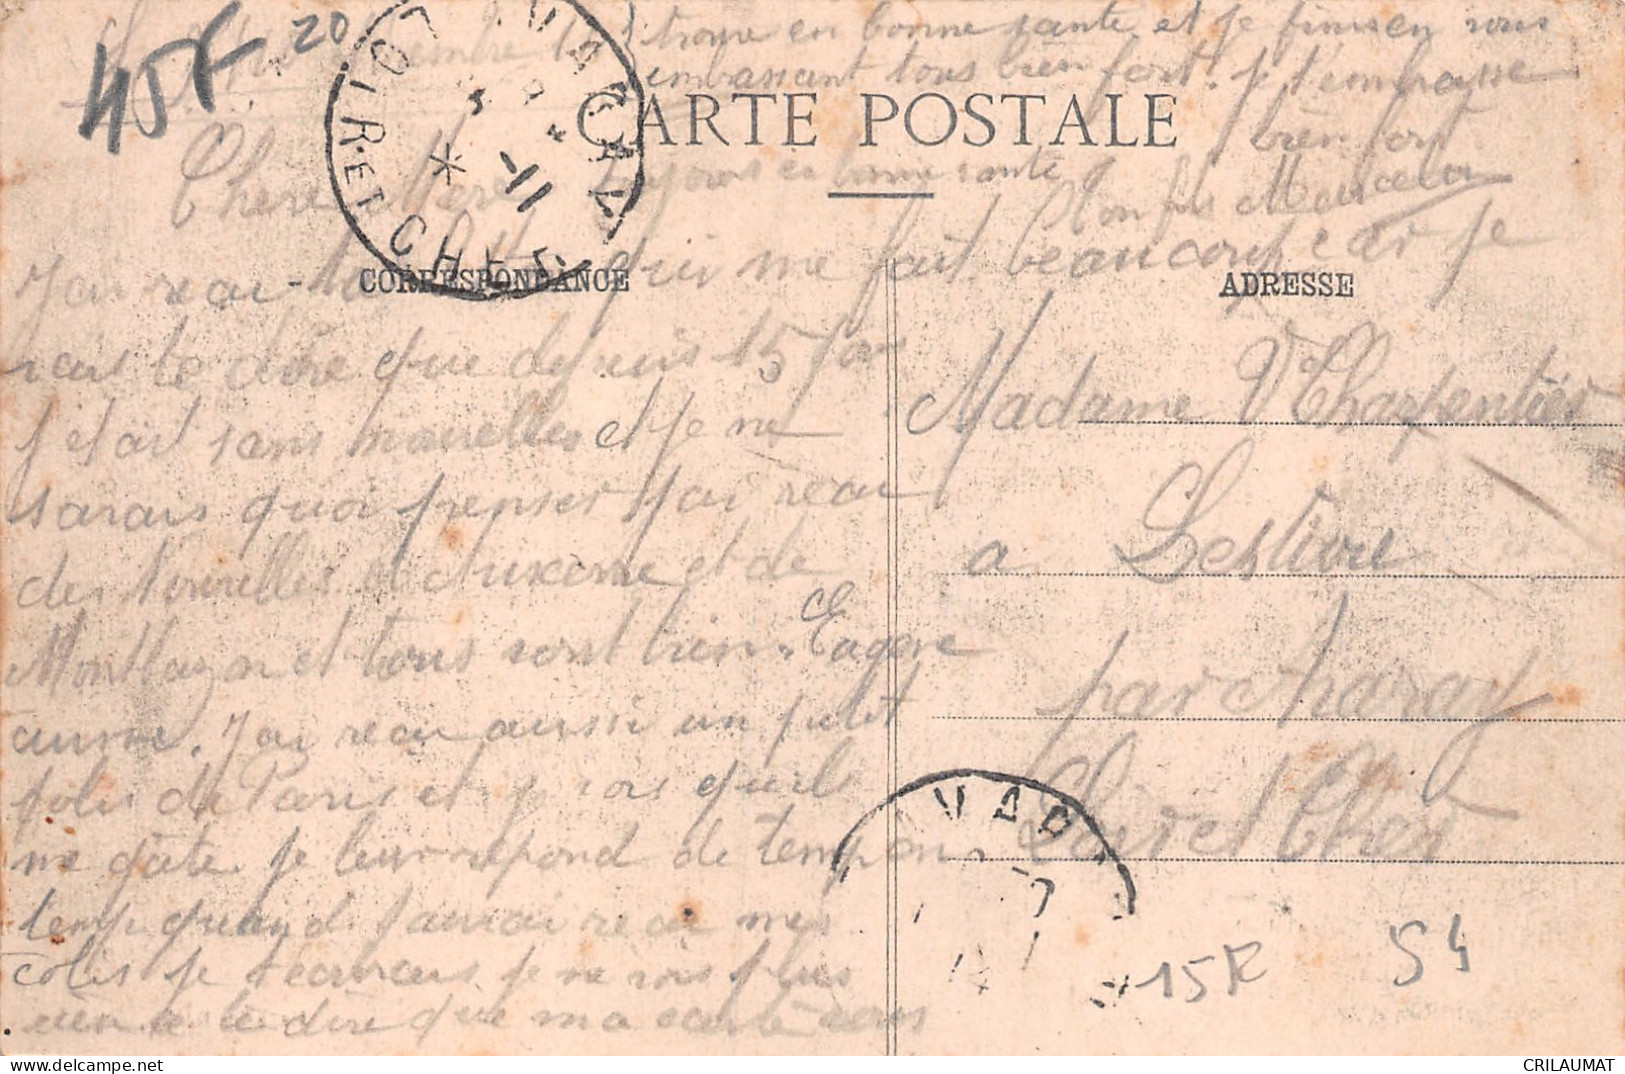 45F 20
trouve en bonne santé et je finis en vous
embrassant tous bien fort. Je t'embrasse
bien fort
CARTE POSTALE
toujours en bonne santé
Mon fils Marcel
Chère Mère
J'ai reçu ta qui me fait beaucoup car je
CORRESPONDANCE
vais te dire que depuis 15 jours
j etait sans nouvelles et je ne
savais quoi penser J'ai reçu
des Nouvelles d Auxerre et de
et tous sont bien.
aussi. J'ai reçu aussi un petit
colis de Paris et je vois qu'ils
me gâte je leur répond de temp en
temp quand j'aurai reçu mes
colis je t'ecrirais je ne vois plus
rien a te dire que ma santé
ADRESSE
Madame V Charpentier
a Lestiou
par Avaray
Loir et Cher
AVARAY
LOIR-ET-CHER
11
AVAR
15R
54
CRILAUMAT